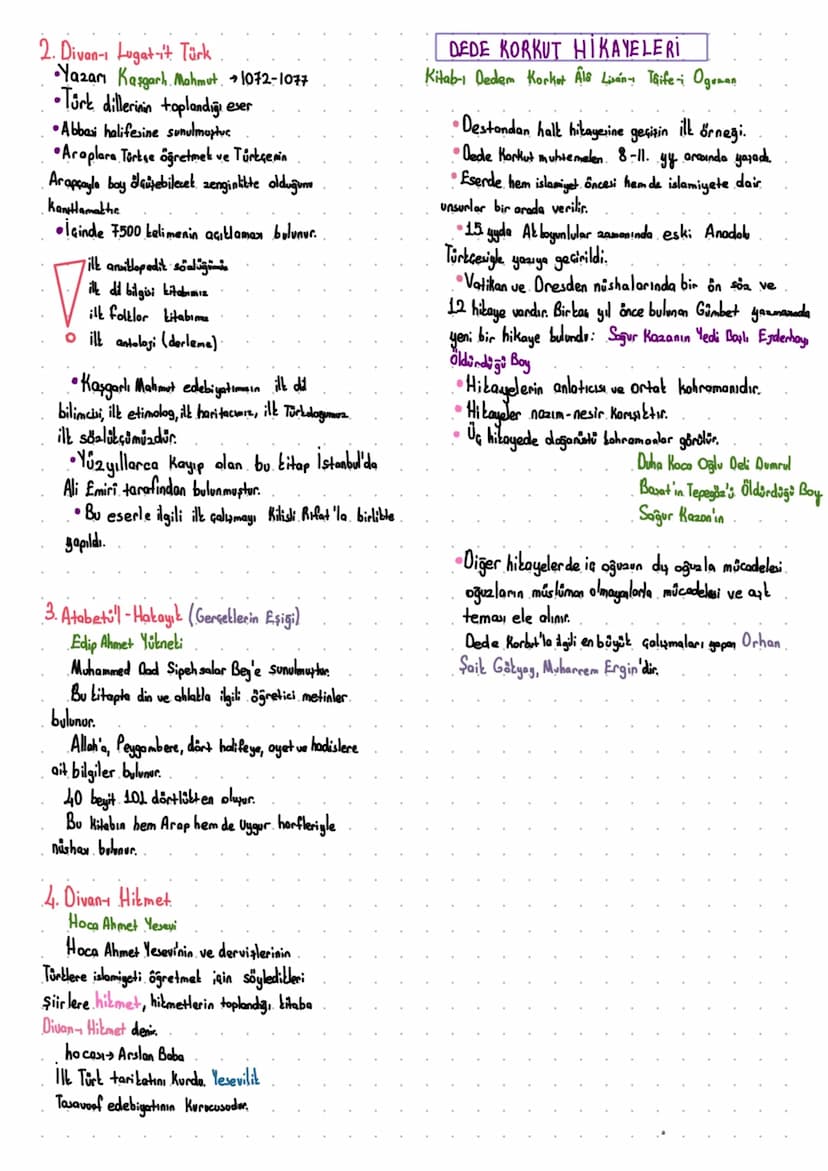 2. Divan-ı Lugat-it Türk
•Yazarı Kaşgarlı Mahmut →1072-1077
•Türk dillerinin toplandığı eser
•Abbasi halifesine sunulmuştur
•Araplara Türkçe öğretmek ve Türkçenin
Arapçayla boy ölçüşebilecek zenginlikte olduğunu
kanıtlamaktır
•İçinde 7500 kelimenin açıklaması bulunur.
! ilk ansiklopedik sözlüğümüz
ilk dil bilgisi kitabımız
ilk folklor kitabımız
ilk antoloji (derleme)
•Kaşgarlı Mahmut edebiyatımızın ilk dil
bilimcisi, ilk etimolog, ilk haritacımız, ilk Türkoloğumuz
ilk sözlükçümüzdür.
•Yüzyıllarca kayıp olan bu kitap İstanbul'da
Ali Emirî tarafından bulunmuştur.
•Bu eserle ilgili ilk çalışmayı Kilisli Rıfat'la birlikte
yapıldı.
3. Atabetü'l-Hakayık (Gerçeklerin Eşiği)
Edip Ahmet Yükneki
Muhammed Dad Sipehsalar Bey'e sunulmuştur.
Bu kitapta din ve ahlakla ilgili öğretici metinler
bulunur.
Allah'a, Peygambere, dört halifeye, ayet ve hadislere
ait bilgiler bulunur.
40 beyit 101 dörtlükten oluşur.
Bu kitabın hem Arap hem de Uygur harfleriyle
nüshası bulunur.
4. Divan-ı Hikmet
Hoca Ahmet Yesevi
Hoca Ahmet Yesevi'nin ve dervişlerinin
Türklere islamiyeti öğretmek için söyledikleri
şiirlere hikmet, hikmetlerin toplandığı kitaba
Divan-ı Hikmet denir.
hocası→ Arslan Baba
İlk Türk tarikatını kurdu. Yesevilik
Tasavvof edebiyatının kurucusudur.
DEDE KORKUT HİKAYELERİ
Kitab-ı Dedem Korkut Âlâ Lisân-ı Tâife-i Oguzan
•Destandan halk hikayesine geçişin ilk örneği.
•Dede Korkut muhtemelen 8-11. yy arasında yaşadı.
•Eserde hem islamiyet öncesi hem de islamiyete dair
unsurlar bir arada verilir.
•15. yyda Akkoyunlular zamanında eski Anadolu
Türkçesiyle yazıya geçirildi.
•Vatikan ve Dresden nüshalarında bir ön söz ve
12 hikaye vardır. Birkaç yıl önce bulunan Günbet yazmasında
yeni bir hikaye bulundu: Salur Kazanın Yedi Başlı Ejderhayı
Öldürdüğü Boy
•Hikayelerin anlatıcısı ve ortak kahramanıdır.
•Hikayeler nazım-nesir karışıktır.
•Üç hikayede doğaüstü kahramanlar görülür.
Duha Koca Oğlu Deli Dumrul
Basat'ın Tepegöz'ü Öldürdüğü Boy
Salur Kazan'ın
•Diğer hikayelerde iç oğuzun dış oğuzla mücadelesi
oğuzların müslüman olmayanlarla mücadelesi ve aşk
teması ele alınır.
Dede Korkut'la ilgili en büyük çalışmaları yapan Orhan
Şaik Gökyay, Muharrem Ergin'dir.